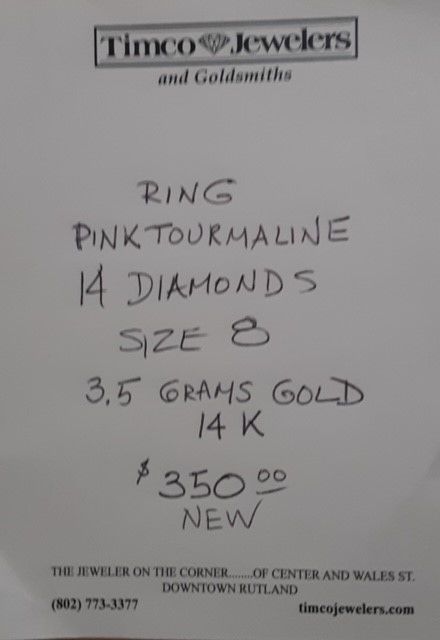 Timco Jewelers
and Goldsmiths
RING
PINK TOURMALINE
14 DIAMONDS
SIZE 8
3.5 GRAMS GOLD
14 K
$350.00
NEW
THE JEWELER ON THE CORNER........OF CENTER AND WALES ST.
DOWNTOWN RUTLAND
(802) 773-3377 timcojewelers.com